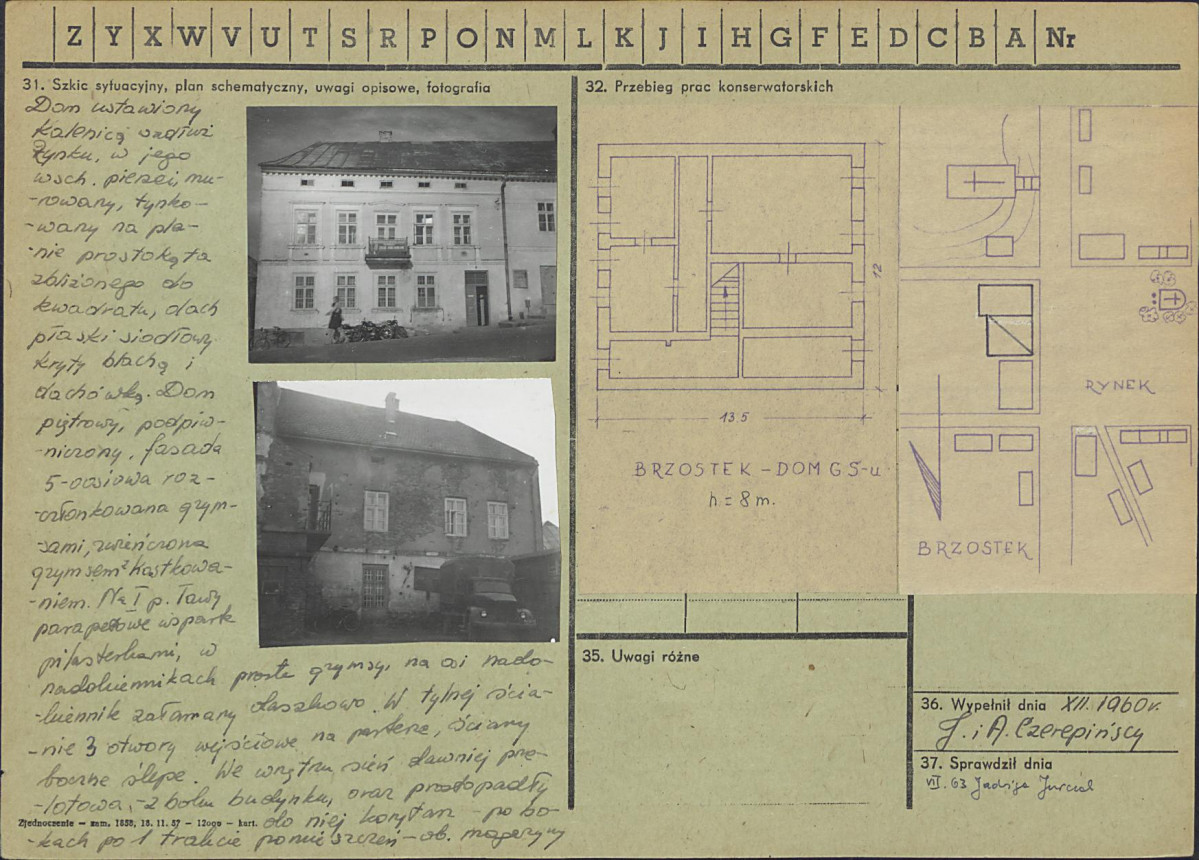 Z Y X W V U T S R P O N M L K J I H G F E D C B A Nr
31. Szkic sytuacyjny, plan schematyczny, uwagi opisowe, fotografia
Dom ustawiony
kalenicą wzdłuż
Rynku, w jego
wsch. pierzei, mu-
-rowany, tynko-
-wany na pla-
-nie prostokąta
zbliżonego do
kwadratu, dach
płaski siodłowy
kryty blachą i
dachówką. Dom
piętrowy, podpiw-
-niczony, fasada
5-osiowa roz-
-członkowana gzym-
-sami, zwieńczona
gzymsem z kostkowa-
-niem. Na I p. ławy
parapetowe wsparte
pilasterkami, w
nadokiennikach proste gzymsy, na osi nado-
-kiennik załamany daszkowo. W tylnej ścia-
-nie 3 otwory wejściowe na parterze, ściany
boczne ślepe. We wnętrzu sień dawniej prze-
-lotowa, z boku budynku, oraz prostopadły
do niej korytarz - po bo-
-kach po 1 trakcie pomieszczeń - ob. magazyny
Zjednoczenie — zam. 1858, 18. 11. 57 — 12000 — kart.
32. Przebieg prac konserwatorskich
12
13.5
BRZOSTEK - DOM GS-u
h = 8 m.
RYNEK
BRZOSTEK
35. Uwagi różne
36. Wypełnił dnia XII. 1960 r.
J. i A. Czerepińscy
37. Sprawdził dnia
VII. 63 Jadwiga